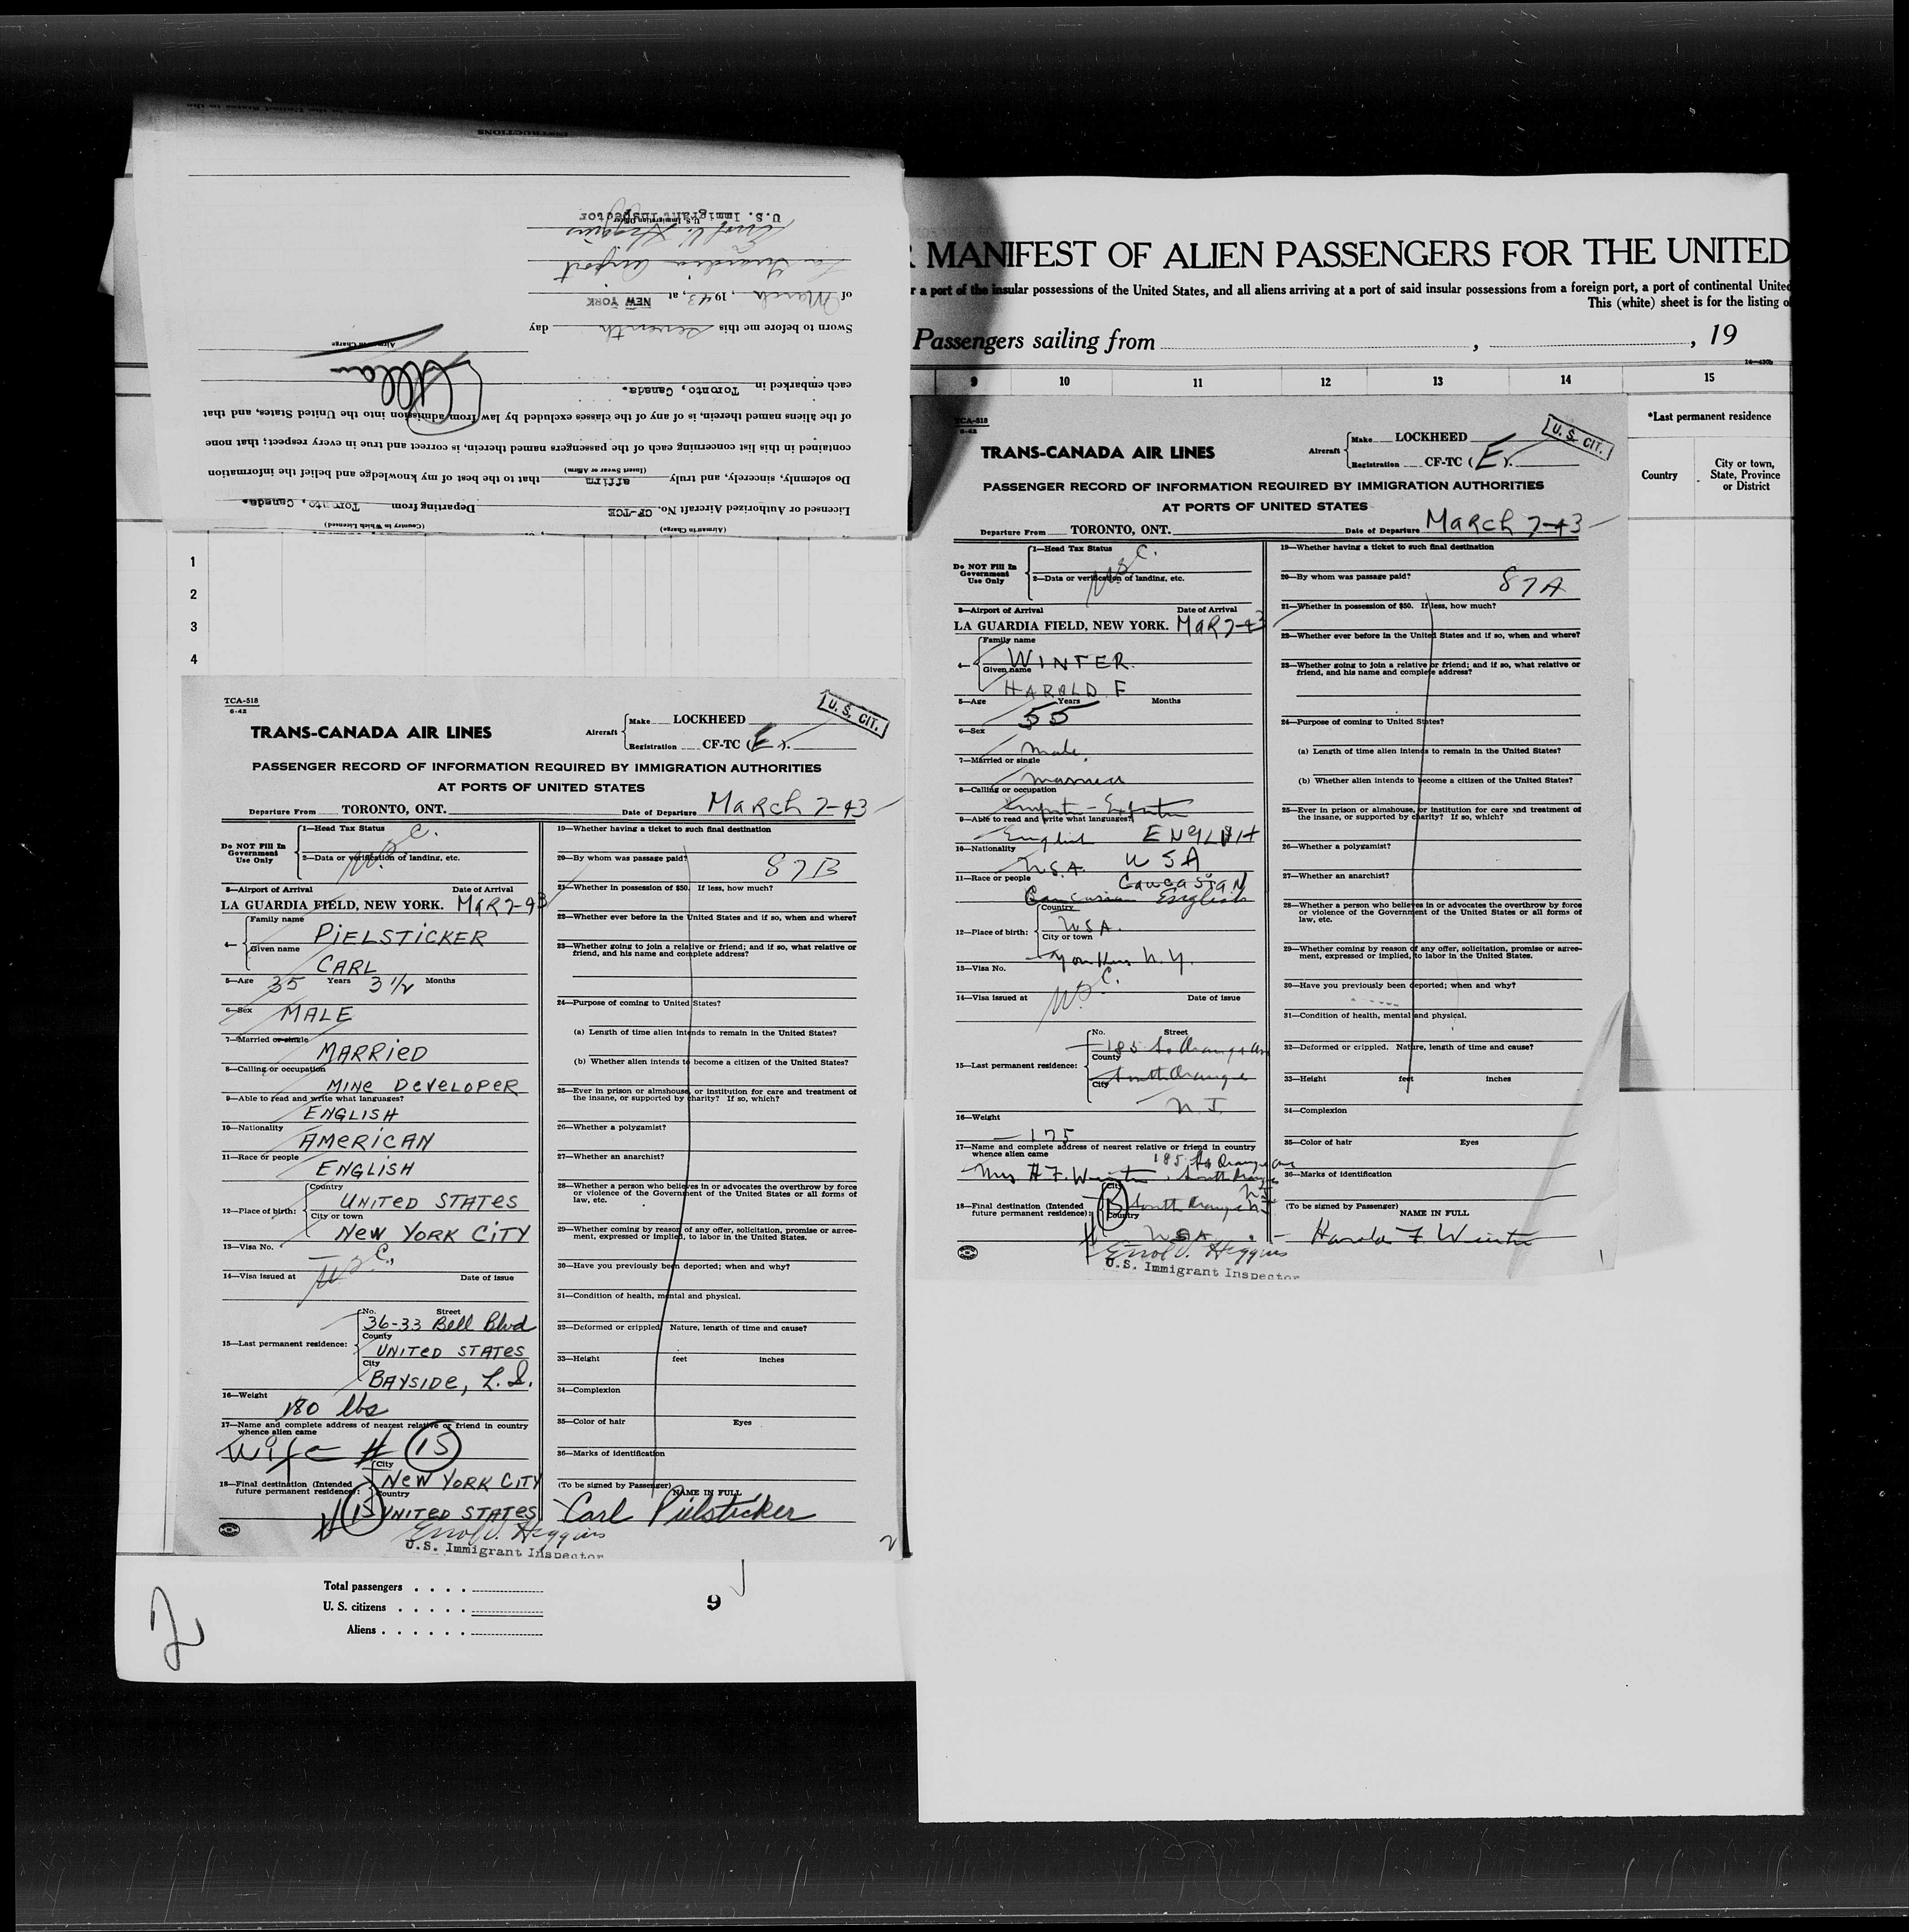 INSTRUCTIONS
U.S. Immigrant Inspector
U.S. Immigration Officer
Errol V. Heggins
La Guardia Airport
of March, 1943, at NEW YORK
Sworn to before me this seventh day
Airman in Charge
each embarked in Toronto, Canada.
of the aliens named therein, is of any of the classes excluded by law from admission into the United States, and that
contained in this list concerning each of the passengers named therein, is correct and true in every respect; that none
(Insert Swear or Affirm)
Do solemnly, sincerely, and truly affirm that to the best of my knowledge and belief the information
Licensed or Authorized Aircraft No. CF-TCE Departing from Toronto, Canada.
(Airman in Charge) (Country in Which Licensed)
1
2
3
4
TCA-518
6-42
U. S. CIT.
TRANS-CANADA AIR LINES
Aircraft Make LOCKHEED
Registration CF-TC (E).
PASSENGER RECORD OF INFORMATION REQUIRED BY IMMIGRATION AUTHORITIES
AT PORTS OF UNITED STATES
Departure From TORONTO, ONT. Date of Departure March 7-43
Do NOT Fill In Government Use Only
1—Head Tax Status
2—Data or verification of landing, etc.
3—Airport of Arrival Date of Arrival
LA GUARDIA FIELD, NEW YORK. MAR 7-43
4— Family name
PIELSTICKER
Given name
CARL
5—Age 35 Years 3 1/2 Months
6—Sex MALE
7—Married or single
MARRIED
8—Calling or occupation
MINE DEVELOPER
9—Able to read and write what languages?
ENGLISH
10—Nationality
AMERICAN
11—Race or people
ENGLISH
12—Place of birth: Country
UNITED STATES
City or town
NEW YORK CITY
13—Visa No.
14—Visa issued at Date of issue
15—Last permanent residence: No. Street
36-33 Bell Blvd
County
UNITED STATES
City
BAYSIDE, L.I.
16—Weight
180 lbs
17—Name and complete address of nearest relative or friend in country
whence alien came
Wife # 15
18—Final destination (Intended
future permanent residence): City
NEW YORK CITY
Country
# 15 UNITED STATES
Errol V. Heggins
U.S. Immigrant Inspector
19—Whether having a ticket to such final destination
20—By whom was passage paid?
87B
21—Whether in possession of $50. If less, how much?
22—Whether ever before in the United States and if so, when and where?
23—Whether going to join a relative or friend; and if so, what relative or
friend, and his name and complete address?
24—Purpose of coming to United States?
(a) Length of time alien intends to remain in the United States?
(b) Whether alien intends to become a citizen of the United States?
25—Ever in prison or almshouse, or institution for care and treatment of
the insane, or supported by charity? If so, which?
26—Whether a polygamist?
27—Whether an anarchist?
28—Whether a person who believes in or advocates the overthrow by force
or violence of the Government of the United States or all forms of
law, etc.
29—Whether coming by reason of any offer, solicitation, promise or agree-
ment, expressed or implied, to labor in the United States.
30—Have you previously been deported; when and why?
31—Condition of health, mental and physical.
32—Deformed or crippled. Nature, length of time and cause?
33—Height feet inches
34—Complexion
35—Color of hair Eyes
36—Marks of identification
(To be signed by Passenger) NAME IN FULL
Carl Pielsticker
2
Total passengers
U. S. citizens
Aliens
9
2
R MANIFEST OF ALIEN PASSENGERS FOR THE UNITED
r a port of the insular possessions of the United States, and all aliens arriving at a port of said insular possessions from a foreign port, a port of continental United
This (white) sheet is for the listing o
Passengers sailing from , , 19
9 10 11 12 13 14 15
*Last permanent residence
Country
City or town,
State, Province
or District
TCA-518
6-42
U. S. CIT.
TRANS-CANADA AIR LINES
Aircraft Make LOCKHEED
Registration CF-TC (E).
PASSENGER RECORD OF INFORMATION REQUIRED BY IMMIGRATION AUTHORITIES
AT PORTS OF UNITED STATES
Departure From TORONTO, ONT. Date of Departure March 7-43
Do NOT Fill In Government Use Only
1—Head Tax Status
2—Data or verification of landing, etc.
3—Airport of Arrival Date of Arrival
LA GUARDIA FIELD, NEW YORK. MAR 7-43
4— Family name
WINTER
Given name
HAROLD F
5—Age Years Months
55
6—Sex
male
7—Married or single
married
8—Calling or occupation
Import - Export
9—Able to read and write what languages?
English ENGLISH
10—Nationality
U.S.A. USA
11—Race or people Caucasian
Caucasian English
12—Place of birth: Country
USA.
City or town
Yonkers N.Y.
13—Visa No.
14—Visa issued at Date of issue
15—Last permanent residence: No. Street
185 So Orange Ave
County
South Orange
City
N.J.
16—Weight
175
17—Name and complete address of nearest relative or friend in country
whence alien came 185 So Orange Ave
Mrs H F. Winter, South Orange
N.J.
18—Final destination (Intended
future permanent residence): City
South Orange N.J.
Country
USA
Errol V. Heggins
U.S. Immigrant Inspector
19—Whether having a ticket to such final destination
20—By whom was passage paid?
87A
21—Whether in possession of $50. If less, how much?
22—Whether ever before in the United States and if so, when and where?
23—Whether going to join a relative or friend; and if so, what relative or
friend, and his name and complete address?
24—Purpose of coming to United States?
(a) Length of time alien intends to remain in the United States?
(b) Whether alien intends to become a citizen of the United States?
25—Ever in prison or almshouse, or institution for care and treatment of
the insane, or supported by charity? If so, which?
26—Whether a polygamist?
27—Whether an anarchist?
28—Whether a person who believes in or advocates the overthrow by force
or violence of the Government of the United States or all forms of
law, etc.
29—Whether coming by reason of any offer, solicitation, promise or agree-
ment, expressed or implied, to labor in the United States.
30—Have you previously been deported; when and why?
31—Condition of health, mental and physical.
32—Deformed or crippled. Nature, length of time and cause?
33—Height feet inches
34—Complexion
35—Color of hair Eyes
36—Marks of identification
(To be signed by Passenger) NAME IN FULL
Harold F. Winter
1